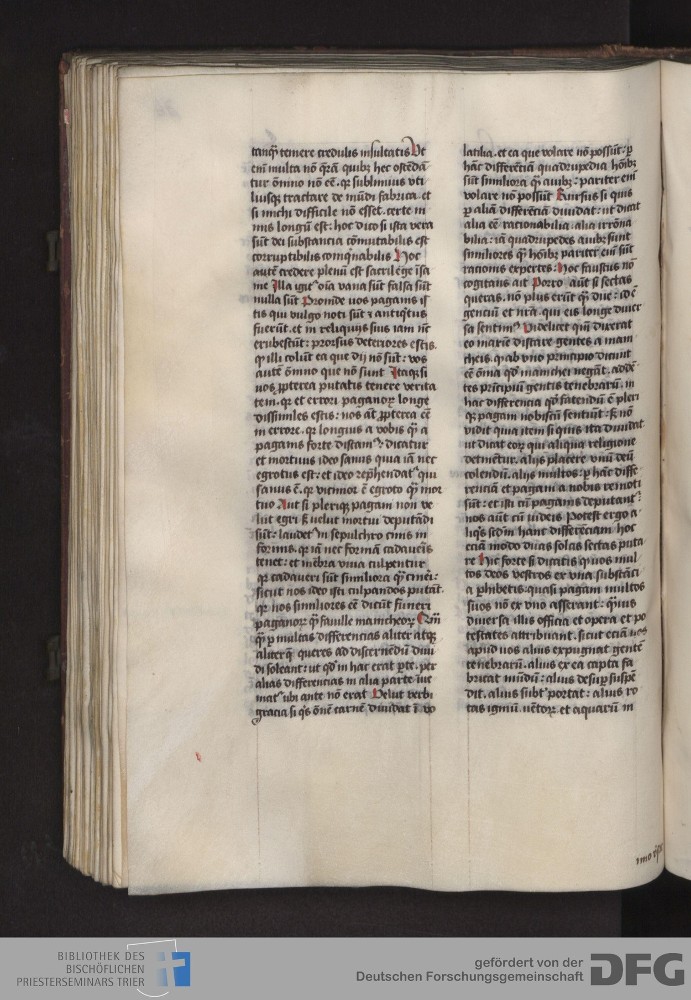 tanq̄ temere credulis insultatis Ut
eni multa nō q̄rā quibȝ hec ostēdā
tur ōmino nō eē. qȝ sublimius vti
liusqȝ tractare de mūdi fabrica. et
si michi difficile nō esset. certe in
mis longū est: hoc dico si ista vera
sūt dei substancia cōmutabilis est
corruptibilis coinq̄nabilis Hoc
autē credere plenū est sacrilege īsa
nie Illa igit᷑ oīa vana sūt falsa sūt
nulla sūt Proinde uos paganis is
tis qui vulgo noti sūt ⁊ antiq̄tus
fuerūt. et in reliquijs suis iam nūc
erubescūt: prorsus deteriores estis.
qȝ illi colūt ea que dij nō sūt: vos
autē ōmino que nō sunt Itaqȝ si
uos ꝓpterea putatis tenere verita
tem. qȝ et errori paganoꝝ longe
dissimiles estis: nos aūt ꝓpterea eē
in errore. qȝ longius a vobis q̄ a
paganis forte distam᷑: dicatur
et mortuus ideo sanus quia iā nec
egrotus est: et ideo rep̄hendat᷑ qui
sanus ē. qȝ vicinior ē egroto q̄ mor
tuo Aut si pleriqȝ pagani non ve
lut egri sȝ uelut mortui deputādi
sūt: laudet᷑ in sepulchro cinis in
formis. qȝ iā nec formā cadaueris
tenet: et mēbra viua culpentur
qȝ cadaueri sūt similiora q̄ cineri:
sicut nos ideo isti culpandos putāt.
qȝ nos similiores eē dicūt funeri
paganoꝝ q̄ fauille manicheoꝝ Enī
q̄ ꝑ multas differencias aliter atqȝ
aliter q̄ queres ad discernēdū diui
di soleant: ut qd in hac erat ꝑte. per
alias differencias in alia parte īue
niat᷑ ubi ante nō erat Velut verbi
gracia si q̄s ōnē carnē diuidat ī vo
latilia. et ea que volare nō possūt: ꝑ
hāc differēciā quadrupedia hōībȝ
sūt similiora q̄ auibȝ: pariter eni
volare nō possūt Rursus si quis
ꝑ aliā differēciā diuidat: ut dicat
alia eē rationabilia. alia irrōna
bilia: iā quadrupedes auibȝ sunt
similiores q̄ hōībȝ pariter eni sūt
racionis expertes: Hoc faustus nō
cogitans ait Porro aūt si sectas
queras. nō plus erūt q̄ due: id ē
genciū et nr̄a. qui eis longe diuer
sa sentim᷑ Videlicet qm̄ dixerat
eo marie distare gentes a mani
cheis. qȝ ab vno principio dicunt
eē ōnia qd manichei negāt. addē
tes prīcipiū gentis tenebrarū. in
hac differencia qd fatendiū ē pleri
qȝ pagani nobiscū sentiūt: sȝ nō
vidit qua item si quis ita diuidat
ut dicat eoꝝ qui aliqua religione
detinētur. alijs placere vnū deū
colendū. alijs multos: ꝑ hāc diffe
renciā et pagani a nobis remoti
sūt: et isti cū paganis deputant᷑:
nos aūt cū iudeis Potest ergo a
liq̄s scdm hanc differēciam hoc
eciā modo duas solas sectas puta
re Hic forte si dicatis qz uos mul
tos deos vestros ex vna substāci
a ꝓhibetis: quasi pagani multos
suos nō ex vno asserant: q̄uis
diuersa illis officia et opera et po
testates attribuant. sicut eciā uos
apud uos alius expugnat gentē
tenebrarū. alius ex ea capta fa
bricat mūdū: alius desuꝑ suspē
dit. alius subt᷑ portat: alius ro
tas igniū. uētoꝝ. et aquarū in
BIBLIOTHEK DES
BISCHÖFLICHEN
PRIESTERSEMINARS TRIER
gefördert von der
Deutschen Forschungsgemeinschaft
DFG